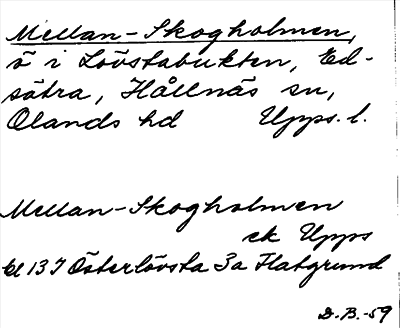 Mellan-Skogholmen,
ö i Lövstabukten, Ed-
sätra, Hållnäs sn,
Olands hd Upps. l.
Mellan-Skogholmen
ek Upps
bl 137 Österlövsta 3a Flatgrund
D.B.-59